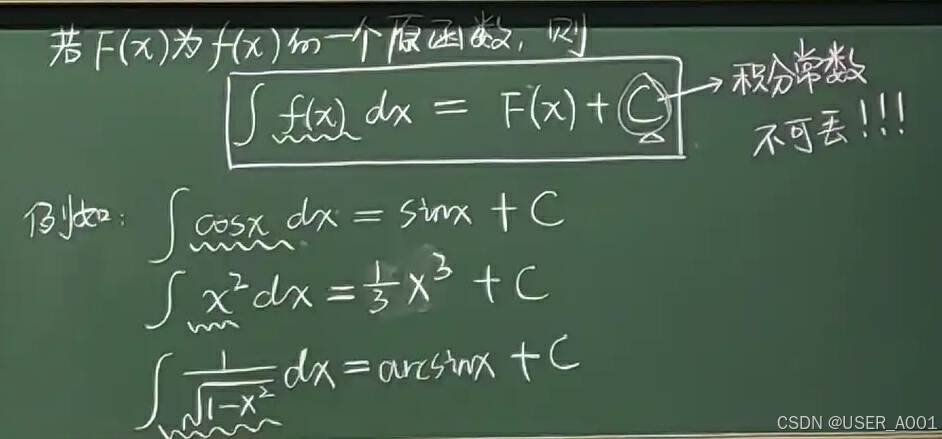 若F(x)为f(x)的一个原函数,则
∫ f(x) dx = F(x) + C → 积分常数
不可丢!!!
例如: ∫ cosx dx = sinx + C
∫ x² dx = 1/3 x³ + C
∫ 1/√(1-x²) dx = arcsinx + C
CSDN @USER_A001